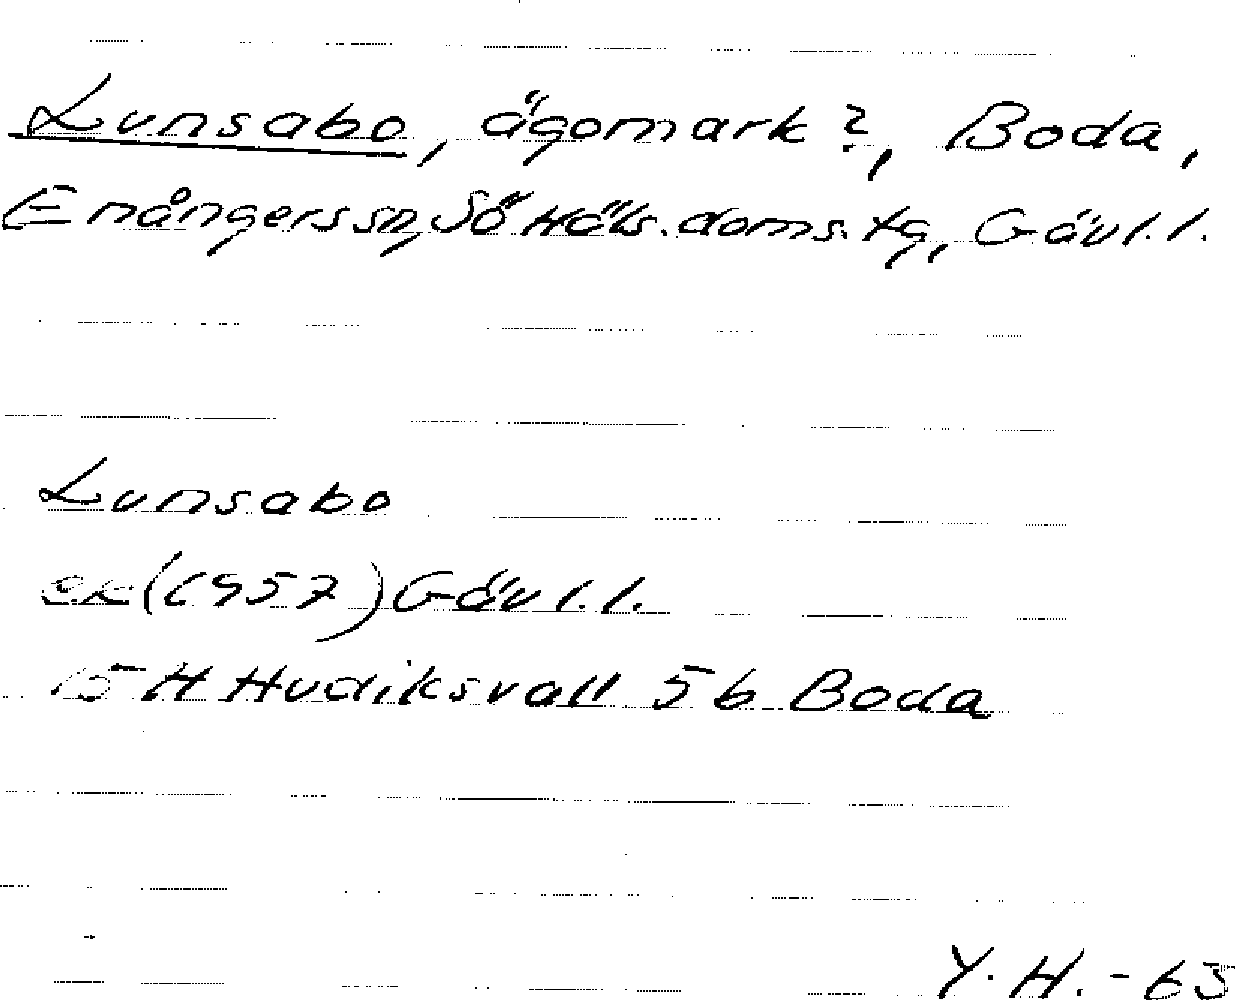 Lunsabo, ägomark?, Boda,
Enångers sn, Sö Häls. doms. tg, Gävl. l.
Lunsabo
ek (1957) Gävl. l.
15 H Hudiksvall 5 b Boda
Y. H. - 63